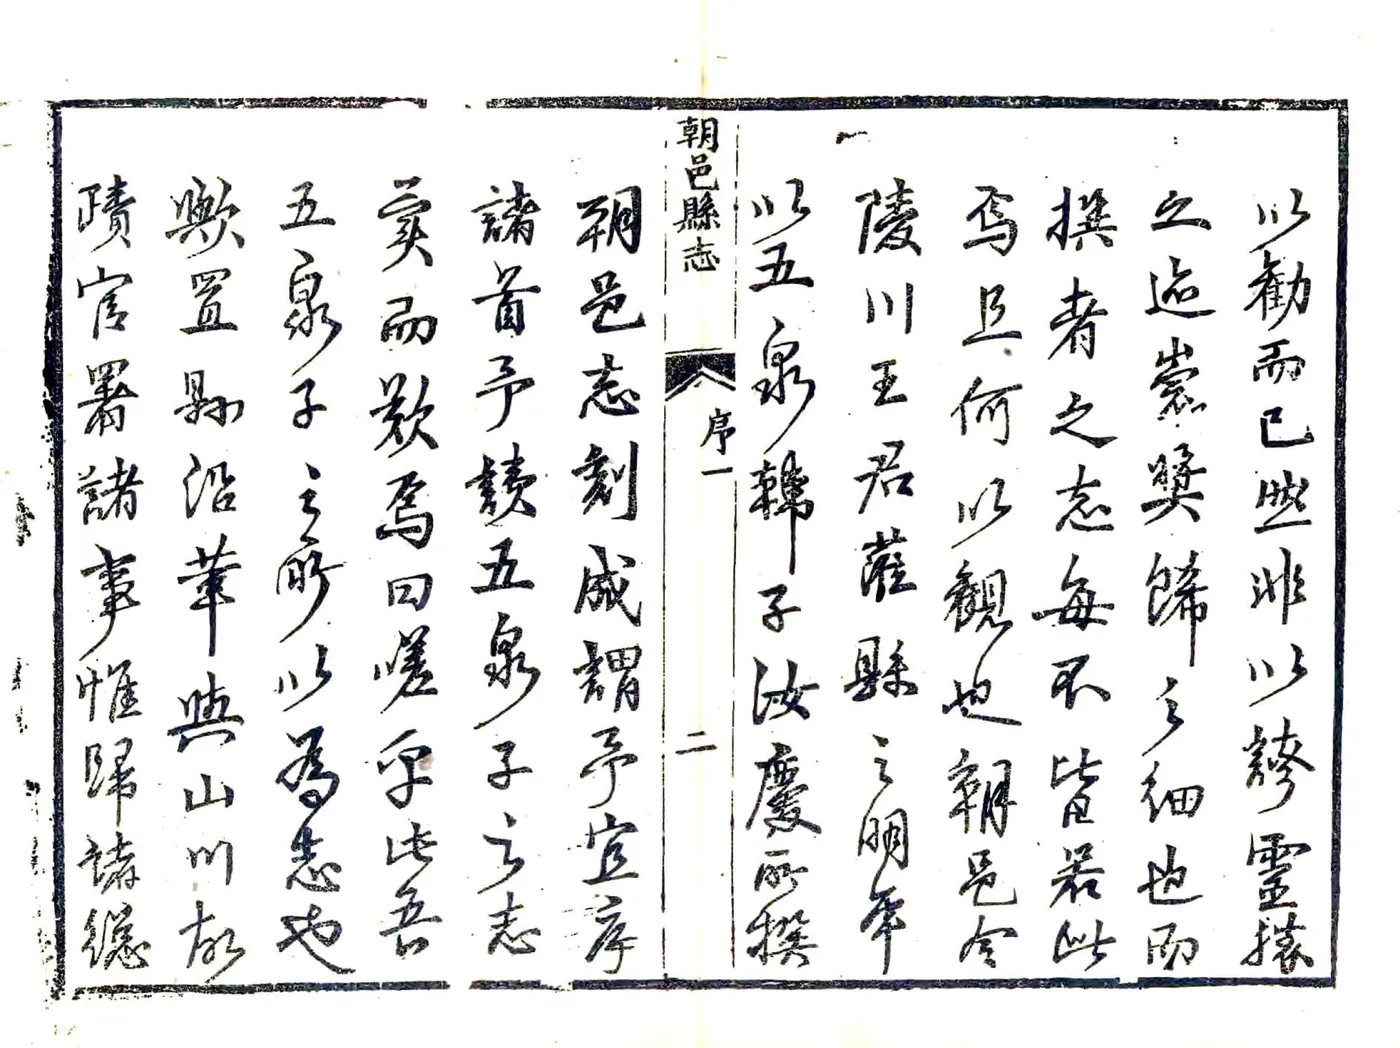 以勸而已然非以誇靈
之迹崇奬歸之細也而
撰者之志每不皆若此
焉且何以觀也朝邑令
陵川王君蒞縣之明年
以五泉韓子汝慶所撰
朝邑縣志
序一
二
朝邑志刻成謂予宜序
諸首予讀五泉子之志
奚而歎焉曰嗟乎此吾
五泉子之所以為志也
歟置縣沿革與山川故
蹟官署諸事惟歸諸總